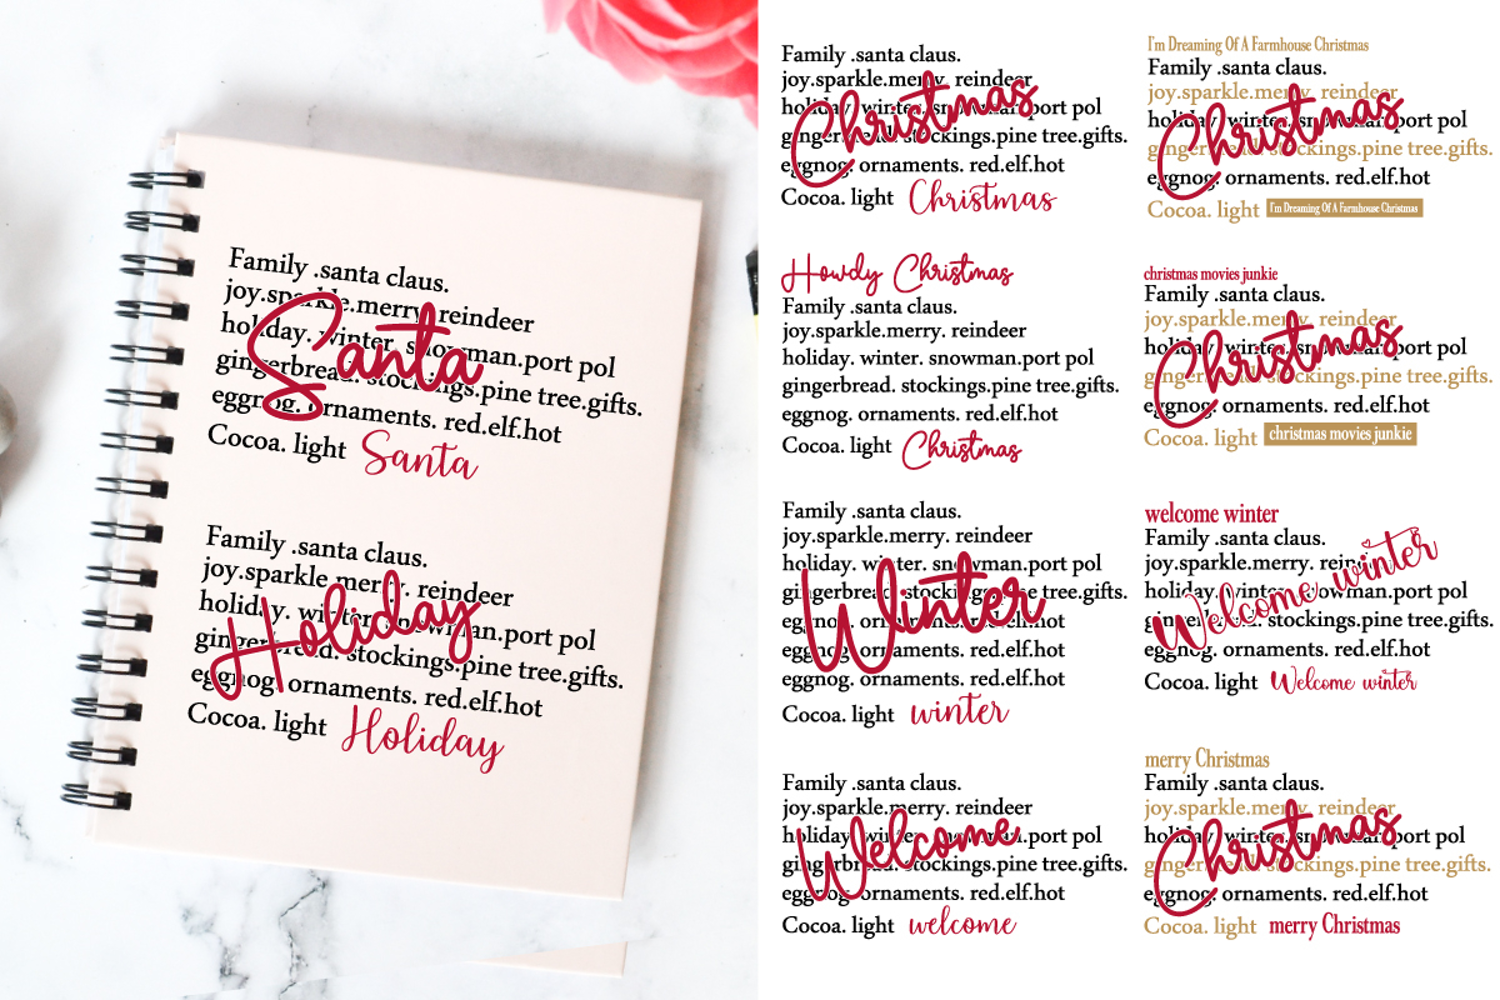 Family .santa claus.
joy.sparkle.merry reindeer
holiday. winter. snowman.port pol
Santa
gingerbread. stockings.pine tree.gifts.
eggnog. ornaments. red.elf.hot
Cocoa. light Santa
Family .santa claus.
joy.sparkle merry. reindeer
holiday. winter. snowman.port pol
Holiday
gingerbread. stockings.pine tree.gifts.
eggnog. ornaments. red.elf.hot
Cocoa. light Holiday
Family .santa claus.
joy.sparkle.merry reindeer
holiday. winter. snowman.port pol
Christmas
gingerbread. stockings.pine tree.gifts.
eggnog. ornaments. red.elf.hot
Cocoa. light Christmas
Howdy Christmas
Family .santa claus.
joy.sparkle.merry. reindeer
holiday. winter. snowman.port pol
gingerbread. stockings.pine tree.gifts.
eggnog. ornaments. red.elf.hot
Cocoa. light Christmas
Family .santa claus.
joy.sparkle.merry. reindeer
holiday. winter. snowman.port pol
Winter
gingerbread. stockings.pine tree.gifts.
eggnog. ornaments. red.elf.hot
eggnog. ornaments. red.elf.hot
eggnog. ornaments. red.elf.hot
Cocoa. light winter
Family .santa claus.
joy.sparkle.merry. reindeer
holiday. winter. snowman.port pol
Welcome
gingerbread. stockings.pine tree.gifts.
eggnog. ornaments. red.elf.hot
Cocoa. light welcome
I'm Dreaming Of A Farmhouse Christmas
Family .santa claus.
joy.sparkle.merry. reindeer
holiday. winter. snowman.port pol
Christmas
gingerbread. stockings.pine tree.gifts.
eggnog. ornaments. red.elf.hot
Cocoa. light I'm Dreaming Of A Farmhouse Christmas
christmas movies junkie
Family .santa claus.
joy.sparkle.merry. reindeer
holiday. winter. snowman.port pol
Christmas
gingerbread. stockings.pine tree.gifts.
eggnog. ornaments. red.elf.hot
Cocoa. light christmas movies junkie
welcome winter
Family .santa claus.
joy.sparkle.merry. reindeer
holiday. winter. snowman.port pol
Welcome winter
gingerbread. stockings.pine tree.gifts.
eggnog. ornaments. red.elf.hot
Cocoa. light Welcome winter
merry Christmas
Family .santa claus.
joy.sparkle.merry. reindeer
holiday. winter. snowman.port pol
Christmas
gingerbread. stockings.pine tree.gifts.
eggnog. ornaments. red.elf.hot
Cocoa. light merry Christmas